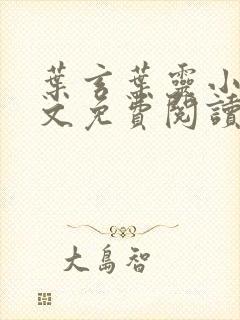 葉言葉靈小
文免費閱讀
大島智